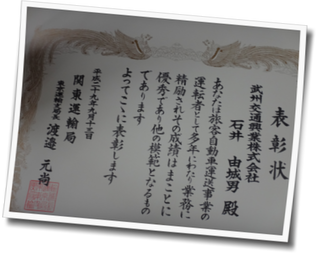 表彰状
武州交通興業株式会社
石井 由城男 殿
あなたは旅客自動車運送事業の
運転者として多年にわたり業務に
精励されその成績はまことに
優秀であり他の模範となるもの
であります
よってここに表彰します
平成二十九年九月十三日
関東運輸局
東京運輸支局長 渡邉 元尚